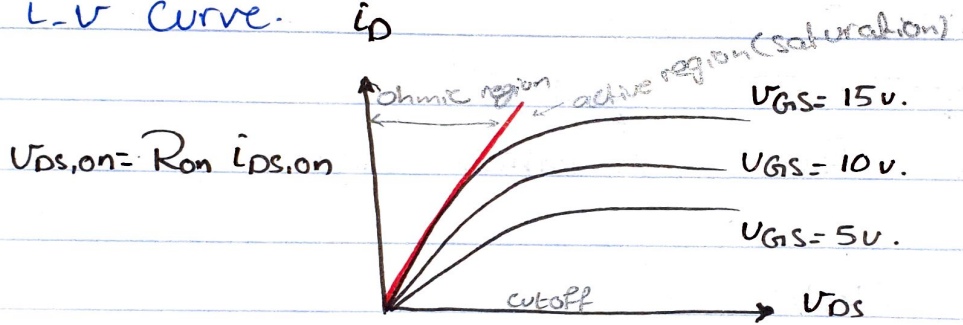 i-v Curve.
iD
ohmic region
active region (saturation)
VGS= 15 v.
VDS,on= Ron iDS,on
VGS= 10 v.
VGS= 5 v.
cutoff
VDS